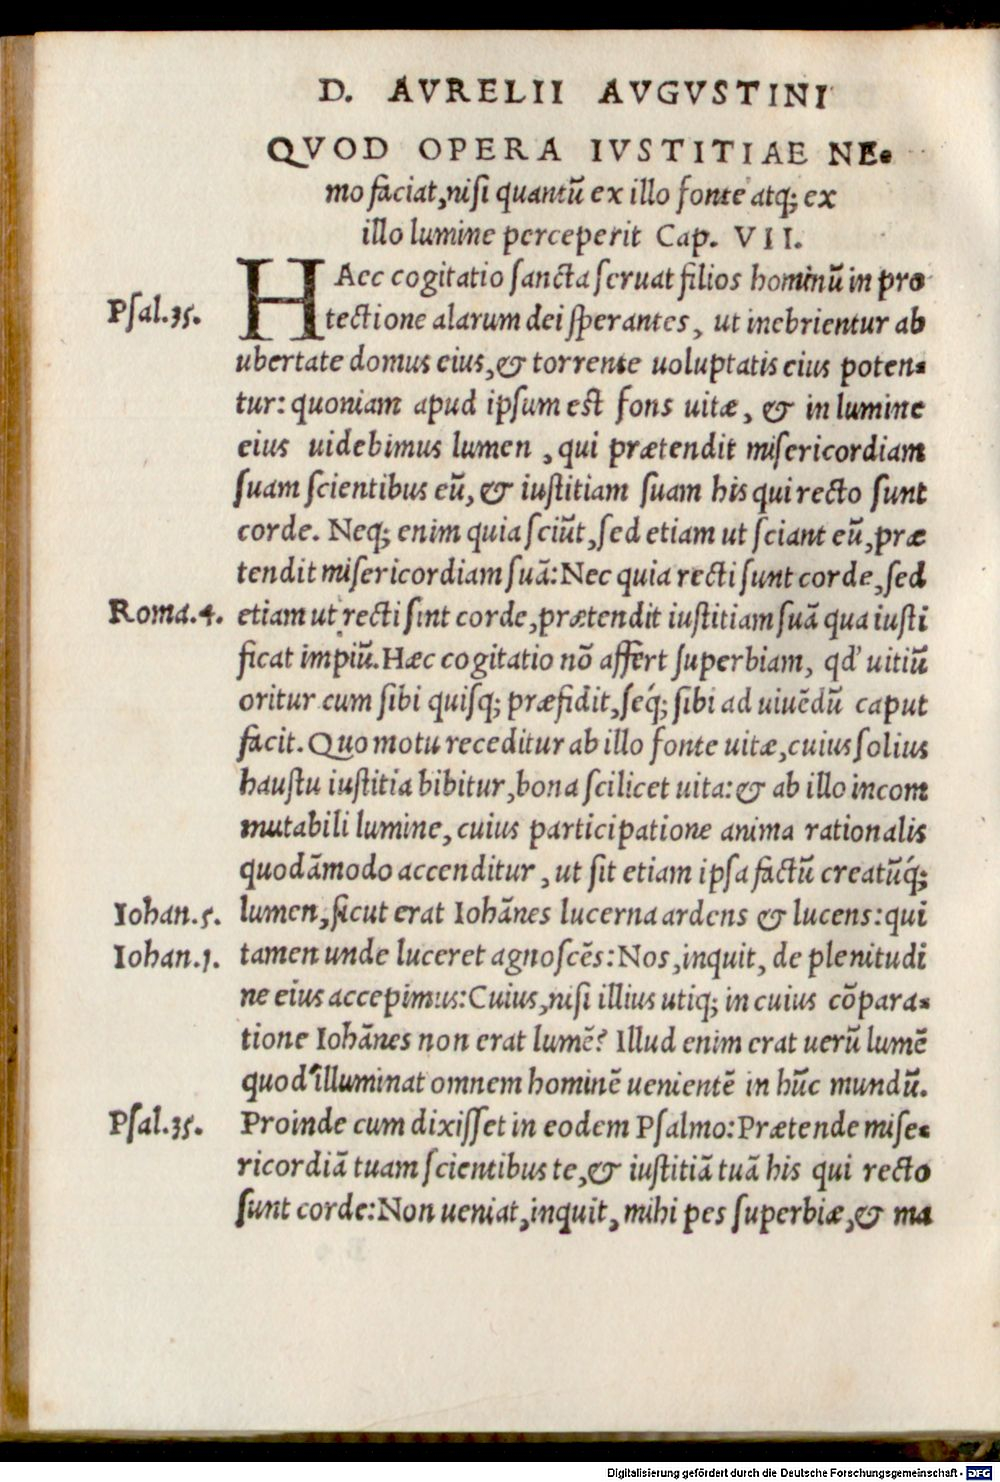 D. AVRELII AVGVSTINI
QVOD OPERA IVSTITIAE NE-
mo faciat, nisi quantū ex illo fonte atq; ex
illo lumine perceperit Cap. VII.
HAec cogitatio sancta seruat filios hominū in pro
Psal.35. tectione alarum dei sperantes, ut inebrientur ab
ubertate domus eius, & torrente uoluptatis eius poten-
tur: quoniam apud ipsum est fons uitæ, & in lumine
eius uidebimus lumen, qui prætendit misericordiam
suam scientibus eū, & iustitiam suam his qui recto sunt
corde. Neq; enim quia sciūt, sed etiam ut sciant eū, præ
tendit misericordiam suā: Nec quia recti sunt corde, sed
Roma.4. etiam ut recti sint corde, prætendit iustitiam suā qua iusti
ficat impiū. Hæc cogitatio nō affert superbiam, qd' uitiū
oritur cum sibi quisq; præfidit, seq́; sibi ad uiuēdū caput
facit. Quo motu receditur ab illo fonte uitæ, cuius solius
haustu iustitia bibitur, bona scilicet uita: & ab illo incom
mutabili lumine, cuius participatione anima rationalis
quodāmodo accenditur, ut sit etiam ipsa factū creatūq́;
Iohan.5. lumen, sicut erat Iohānes lucerna ardens & lucens: qui
Iohan.1. tamen unde luceret agnoscēs: Nos, inquit, de plenitudi
ne eius accepimus: Cuius, nisi illius utiq; in cuius cōpara-
tione Iohānes non erat lumē? Illud enim erat uerū lumē
quod illuminat omnem hominē uenientē in hūc mundū.
Psal.35. Proinde cum dixisset in eodem Psalmo: Prætende mise-
ricordiā tuam scientibus te, & iustitiā tuā his qui recto
sunt corde: Non ueniat, inquit, mihi pes superbiæ, & ma
Digitalisierung gefördert durch die Deutsche Forschungsgemeinschaft - DFG